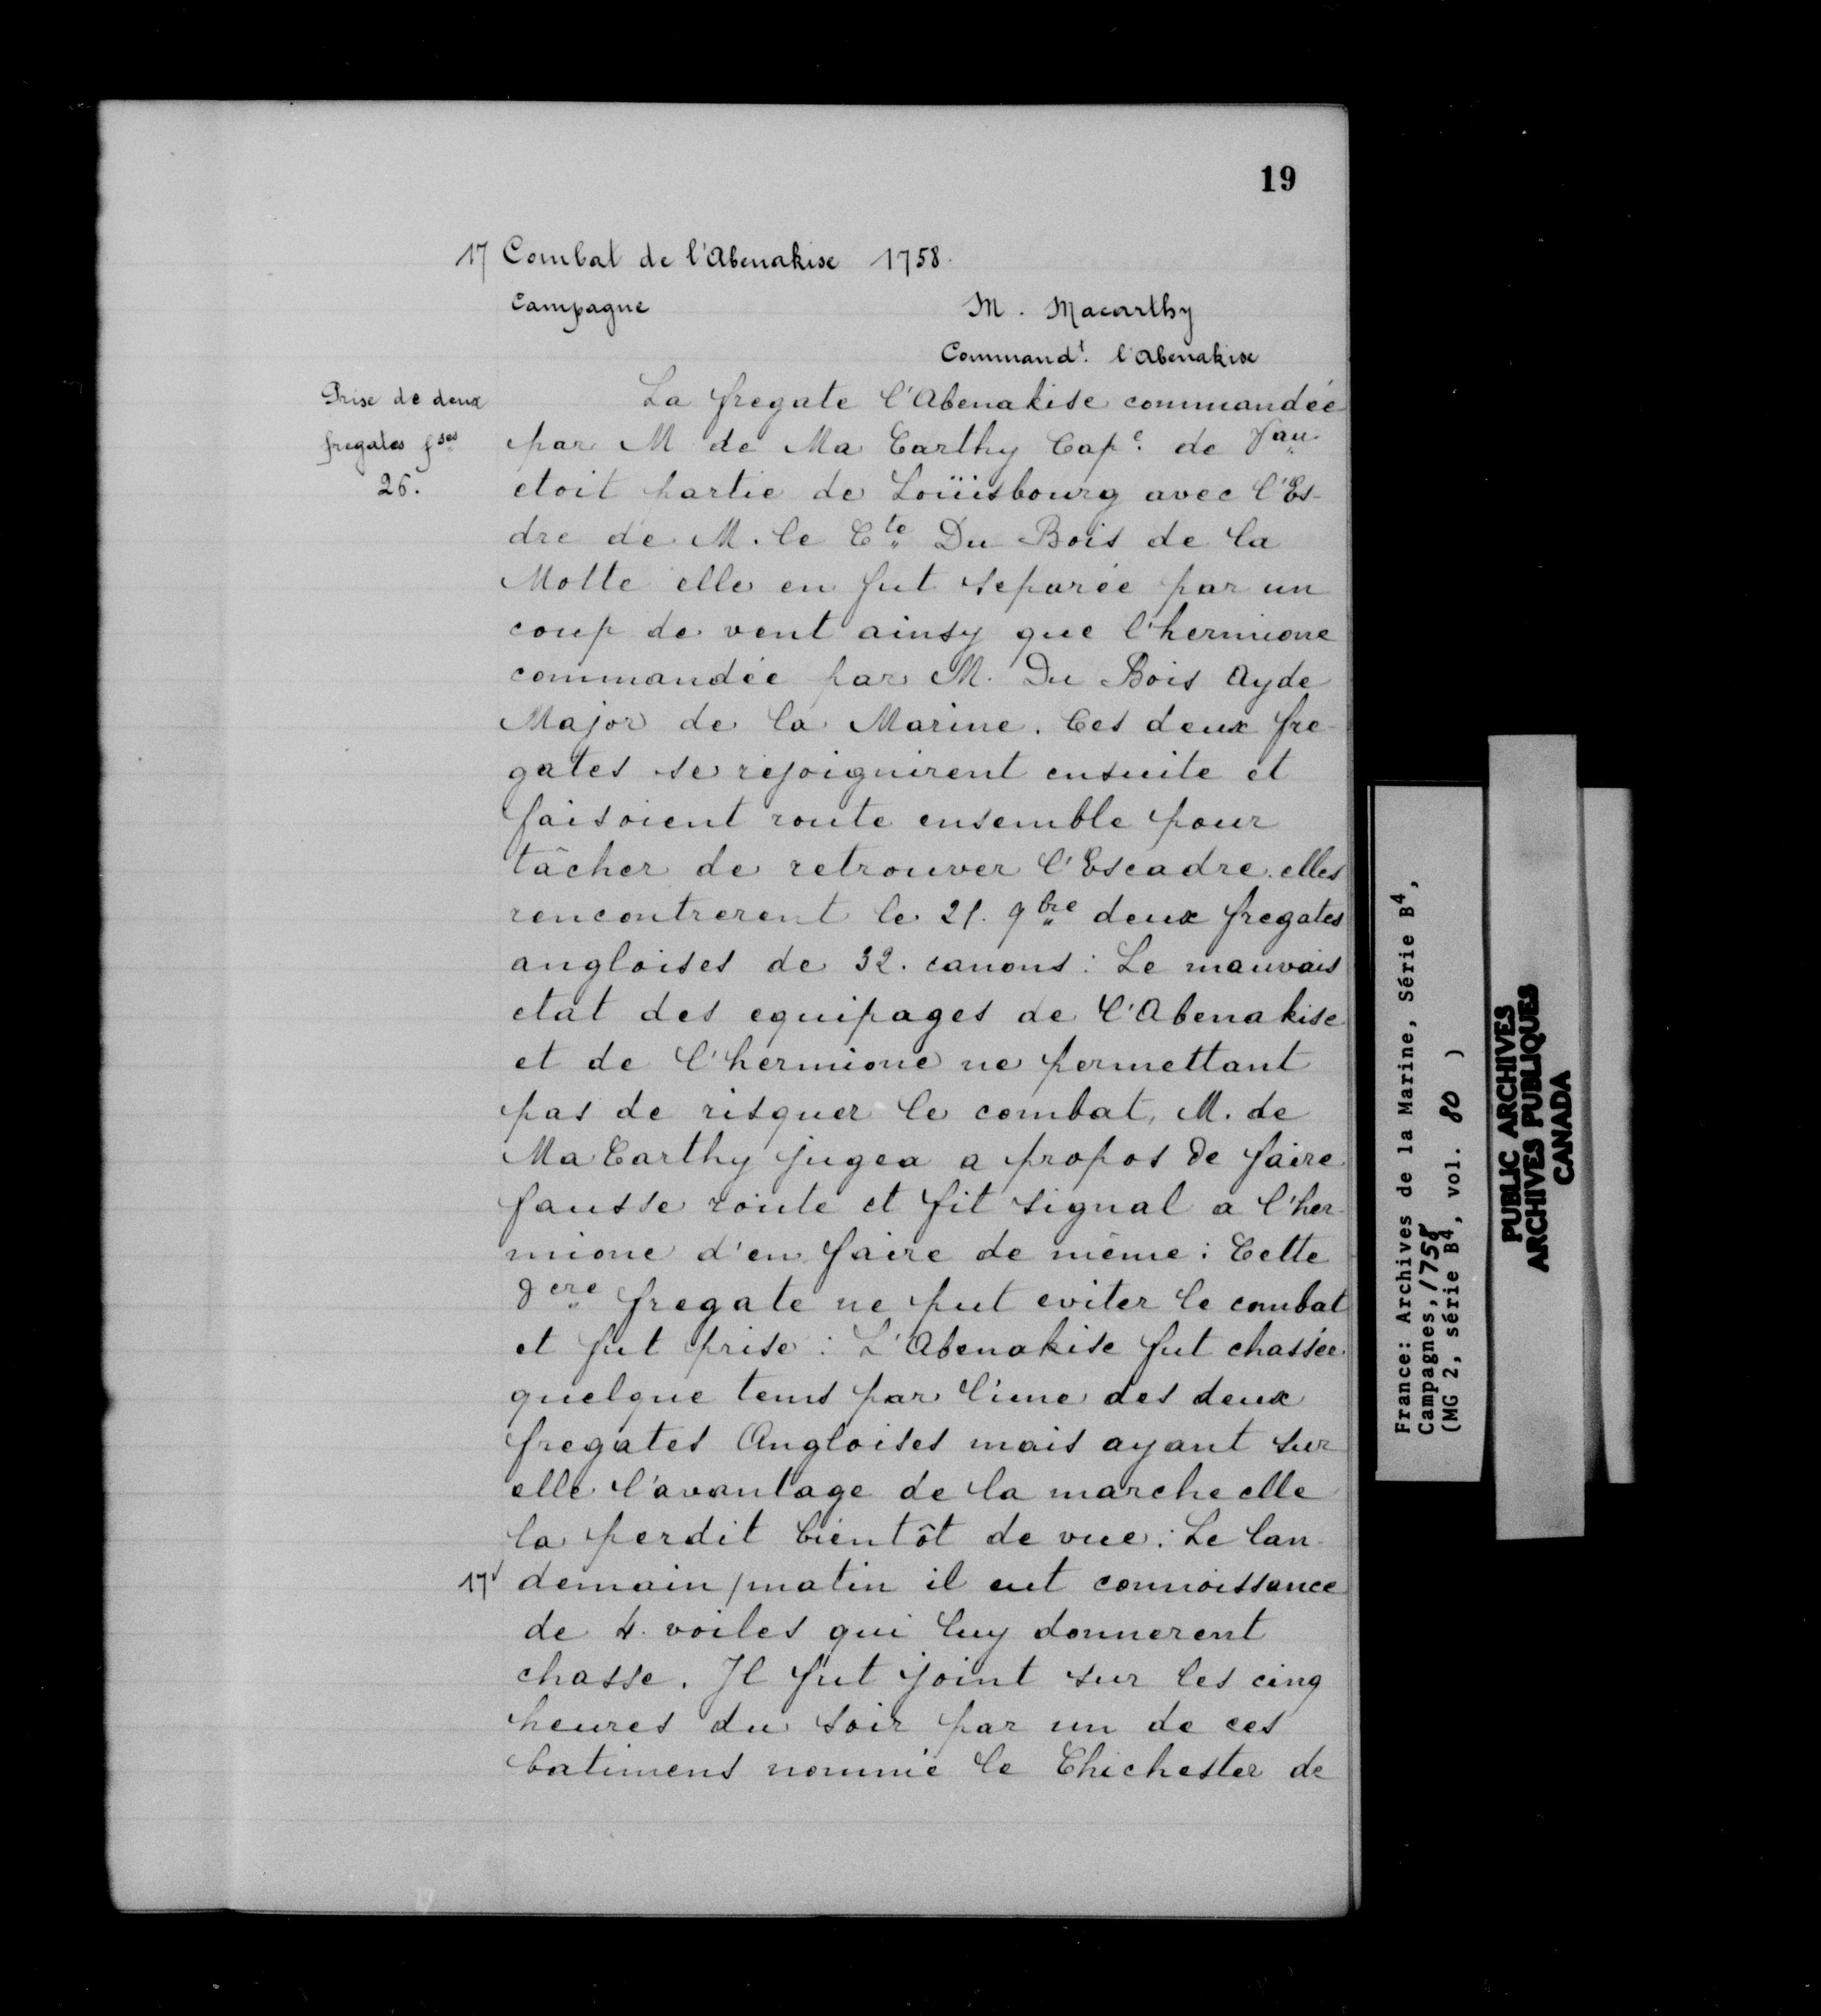 19
17 Combat de l'Abenakise 1758.
Campagne
M. Macarthy
Command.t l'Abenakise
Prise de deux
fregates f.ses
26.
La fregate l'Abenakise commandée
par M de Ma Carthy Cap.e de Vau
etoit partie de Loüisbourg avec l'Es-
dre de M. le C.te Du Bois de la
Motte elle en fut separée par un
coup de vent ainsy que l'hermione
commandée par M. Du Bois Ayde
Major de la Marine. Ces deux fre-
gates se rejoignirent ensuite et
faisoient route ensemble pour
tâcher de retrouver l'Escadre. elles
rencontrerent le 21. 9bre deux fregates
angloises de 32. canons : Le mauvais
etat des equipages de l'Abenakise
et de l'hermione ne permettant
pas de risquer le combat, M. de
Ma Carthy jugea a propos de faire
fausse route et fit signal a l'her-
mione d'en faire de même : Cette
dere fregate ne put eviter le combat
et fut prise : L'Abenakise fut chassée
quelque tems par l'une des deux
fregates Angloises mais ayant sur
elle l'avantage de la marche elle
la perdit bientôt de vue : Le lan-
17v demain / matin il eut connoissance
de 4. voiles qui luy donnerent
chasse. Il fut joint sur les cinq
heures du soir par un de ces
batimens nommé le Chichester de
France: Archives de la Marine, Série B4,
Campagnes, 1758
(MG 2, série B4, vol. 80 )
PUBLIC ARCHIVES
ARCHIVES PUBLIQUES
CANADA